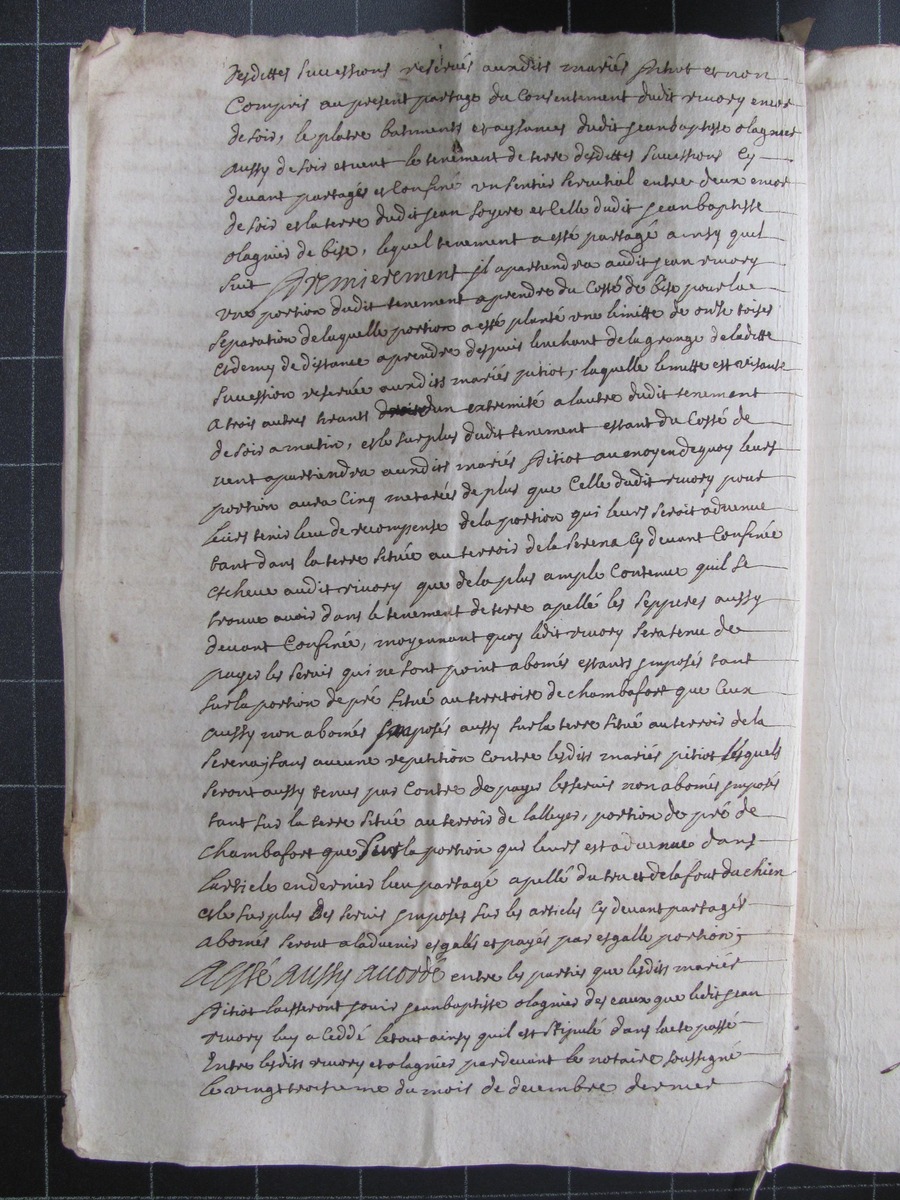 desdittes successions reservés auxdits mariés pitiot et non
Compris au present partage du Consentement dudit rivory encor
de soir, le platre batiments et aysances dudit jeanbaptiste olagnier
aussy de soir et vent le tenement de terre desdittes successions Cy
devant partagés et Confiné un sentier servential entre deux encor
de soir et la terre dudit jean soyere et Celle dudit jeanbaptiste
olagnier de bise, lequel tenement a esté partagé ainsy quil
suit premierement jl apartiendra audit jean rivory
une portion dudit tenement a prendre du Costé de bise pour la
separation de laquelle portion a esté planté une limitte de onze toises
et demy de distance a prendre despuis lenchant de la grange de laditte
succession reservée auxdits mariés pitiot, laquelle limitte est visante
a trois autres trants dun extremité a lautre dudit tenement
de soir a matin, et le surplus dudit tenement estant du Costé de
vent apartiendra auxdits mariés pitiot au moyen de quoy leurs
portion aura Cinq metarées de plus que Celle dudit rivory pour
leurs tenir lieu de recompense de la portion qui leurs seroit advenue
tant dans la terre située au terroir de la serena Cy devant Confinée
et cheue audit rivory que de la plus ample Contenue quil se
trouve avoir dans le tenement de terre apellé les seppures aussy
devant Confinée, moyennant quoy ledit rivory sera tenu de
payer les servis qui ne sont point abonés estants jmposés tant
sur la portion de pré situé au territoire de chambafort que Ceux
aussy non abonés jmposés aussy sur la terre situé au terroir de la
serena, sans aucune repetition Contre lesdits mariés pitiot lesquels
seront aussy tenus par Contre de payer les servis non abonés jmposés
tant sur la terre située au terroir de lalleyer, portion de pré de
chambafort que sur la portion qui leurs est advenue dans
larticle en dernier lieu partagé apellé du truc et de la font du chien
et le surplus des servis jmposés sur les articles Cy devant partagés
abonés seront a ladvenir esgalés et payés par esgalle portion;
a esté aussy acordé entre les partis que lesdits mariés
pitiot laisseront jouir jeanbaptiste olagnier des eaux que ledit jean
rivory luy a Ceddé le tout ainsy quil est stipulé dans lacte passé
Entre lesdits rivory et olagnier pardevant le notaire soussigné
le vingt troisieme du mois de decembre dernier